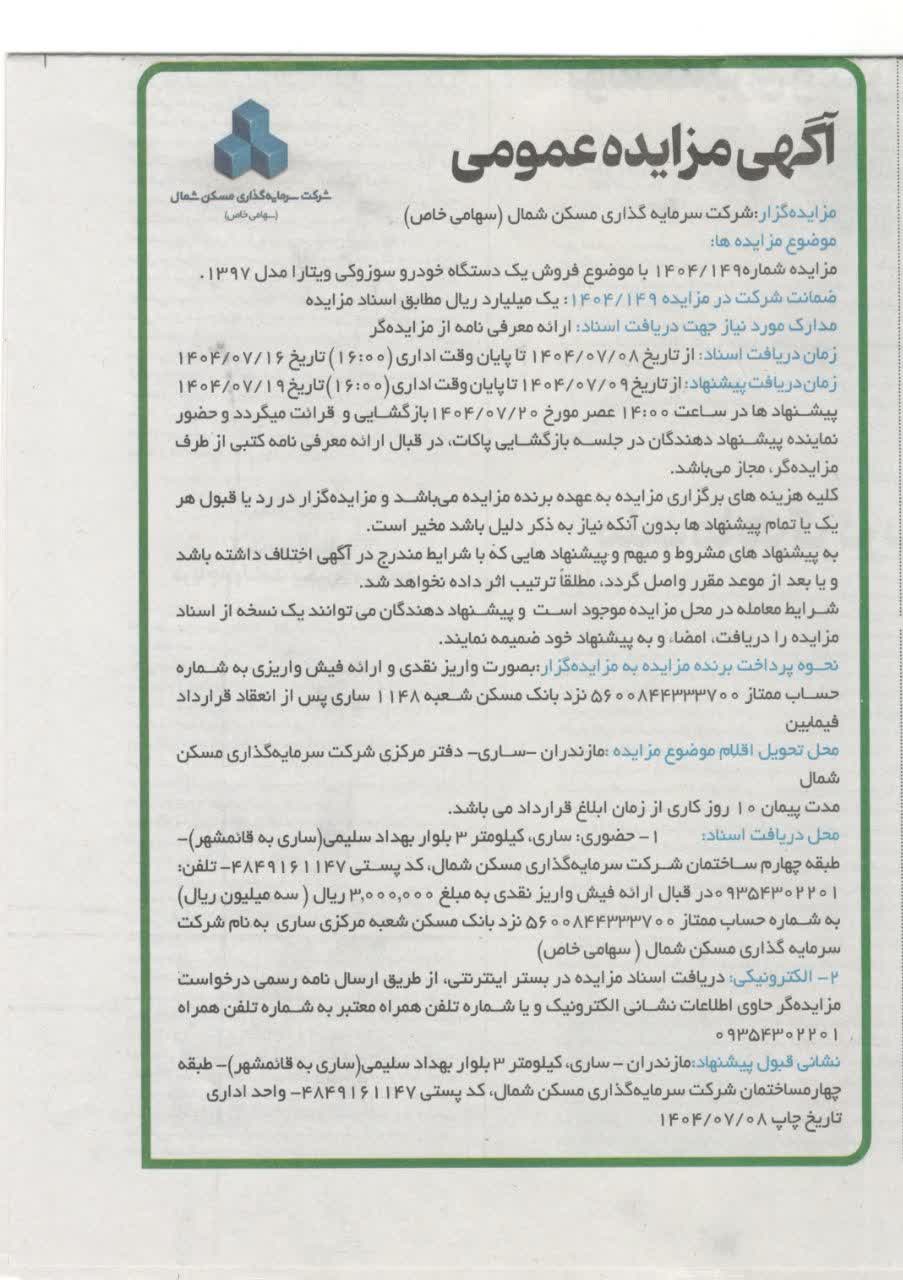 آگهی مزایده عمومی
شرکت سرمایه‌گذاری مسکن شمال
(سهامی خاص)
مزایده‌گزار:شرکت سرمایه گذاری مسکن شمال (سهامی خاص)
موضوع مزایده ها:
مزایده شماره۱۴۰۴/۱۴۹ با موضوع فروش یک دستگاه خودرو سوزوکی ویتارا مدل ۱۳۹۷.
ضمانت شرکت در مزایده ۱۴۰۴/۱۴۹: یک میلیارد ریال مطابق اسناد مزایده
مدارک مورد نیاز جهت دریافت اسناد: ارائه معرفی نامه از مزایده‌گر
زمان دریافت اسناد: از تاریخ ۱۴۰۴/۰۷/۰۸ تا پایان وقت اداری (۱۶:۰۰) تاریخ ۱۴۰۴/۰۷/۱۶
زمان دریافت پیشنهاد: از تاریخ ۱۴۰۴/۰۷/۰۹ تا پایان وقت اداری (۱۶:۰۰) تاریخ ۱۴۰۴/۰۷/۱۹
پیشنهاد ها در ساعت ۱۴:۰۰ عصر مورخ ۱۴۰۴/۰۷/۲۰بازگشایی و قرائت میگردد و حضور
نماینده پیشنهاد دهندگان در جلسه بازگشایی پاکات، در قبال ارائه معرفی نامه کتبی از طرف
مزایده‌گر، مجاز می‌باشد.
کلیه هزینه های برگزاری مزایده به عهده برنده مزایده می‌باشد و مزایده‌گزار در رد یا قبول هر
یک یا تمام پیشنهاد ها بدون آنکه نیاز به ذکر دلیل باشد مخیر است.
به پیشنهاد های مشروط و مبهم و پیشنهاد هایی که با شرایط مندرج در آگهی اختلاف داشته باشد
و یا بعد از موعد مقرر واصل گردد، مطلقاً ترتیب اثر داده نخواهد شد.
شرایط معامله در محل مزایده موجود است و پیشنهاد دهندگان می توانند یک نسخه از اسناد
مزایده را دریافت، امضاء و به پیشنهاد خود ضمیمه نمایند.
نحوه پرداخت برنده مزایده به مزایده‌گزار:بصورت واریز نقدی و ارائه فیش واریزی به شماره
حساب ممتاز ۵۶۰۰۸۴۴۳۳۳۷۰۰ نزد بانک مسکن شعبه ۱۱۴۸ ساری پس از انعقاد قرارداد
فیمابین
محل تحویل اقلام موضوع مزایده :مازندران -ساری- دفتر مرکزی شرکت سرمایه‌گذاری مسکن
شمال
مدت پیمان ۱۰ روز کاری از زمان ابلاغ قرارداد می باشد.
محل دریافت اسناد: ۱- حضوری: ساری، کیلومتر ۳ بلوار بهداد سلیمی(ساری به قائمشهر)-
طبقه چهارم ساختمان شرکت سرمایه‌گذاری مسکن شمال، کد پستی ۴۸۴۹۱۶۱۱۴۷- تلفن:
۰۹۳۵۴۳۰۲۲۰۱در قبال ارائه فیش واریز نقدی به مبلغ ۳,۰۰۰,۰۰۰ ریال ( سه میلیون ریال)
به شماره حساب ممتاز ۵۶۰۰۸۴۴۳۳۳۷۰۰ نزد بانک مسکن شعبه مرکزی ساری به نام شرکت
سرمایه گذاری مسکن شمال ( سهامی خاص)
۲- الکترونیکی: دریافت اسناد مزایده در بستر اینترنتی، از طریق ارسال نامه رسمی درخواست
مزایده‌گر حاوی اطلاعات نشانی الکترونیک و یا شماره تلفن همراه معتبر به شماره تلفن همراه
۰۹۳۵۴۳۰۲۲۰۱
نشانی قبول پیشنهاد:مازندران - ساری، کیلومتر ۳ بلوار بهداد سلیمی(ساری به قائمشهر)- طبقه
چهارمساختمان شرکت سرمایه‌گذاری مسکن شمال، کد پستی ۴۸۴۹۱۶۱۱۴۷- واحد اداری
تاریخ چاپ ۱۴۰۴/۰۷/۰۸